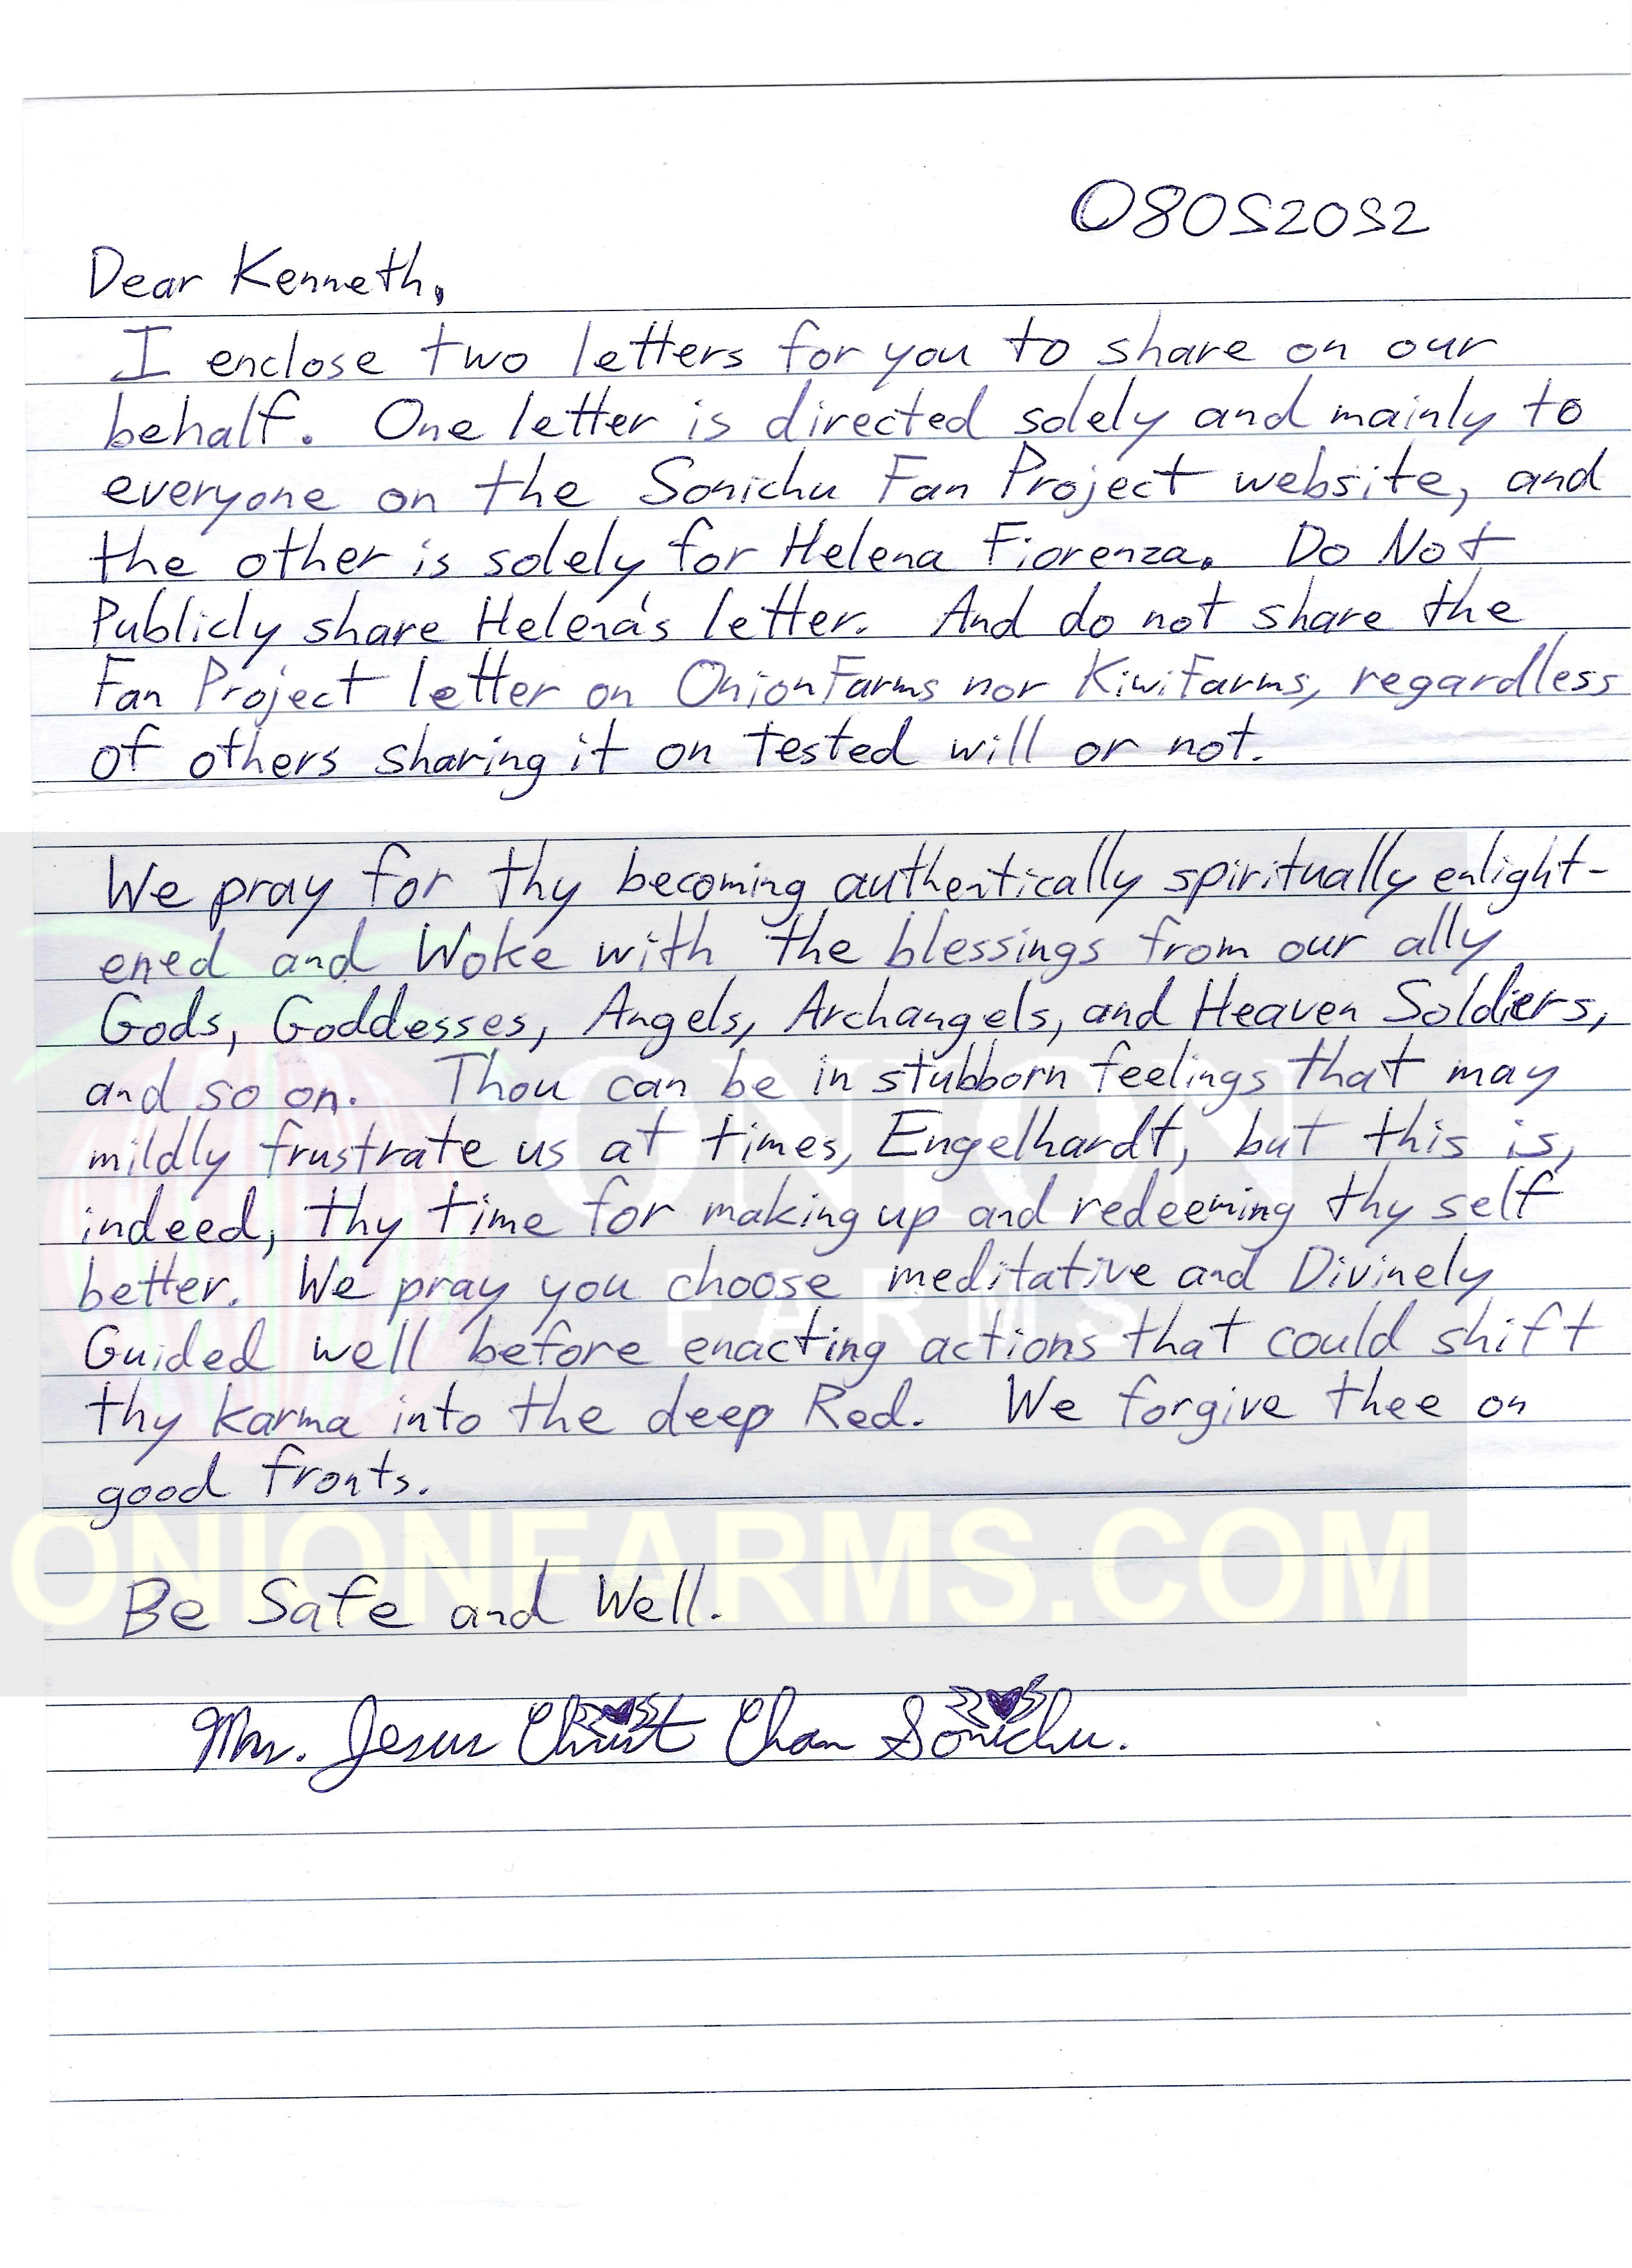 08052052
Dear Kenneth,
I enclose two letters for you to share on our
behalf. One letter is directed solely and mainly to
everyone on the Sonichu Fan Project website, and
the other is solely for Helena Fiorenza. Do Not
Publicly share Helena's letter. And do not share the
Fan Project letter on OnionFarms nor KiwiFarms, regardless
of others sharing it on tested will or not.
We pray for thy becoming authentically spiritually enlight-
ened and Woke with the blessings from our ally
Gods, Goddesses, Angels, Archangels, and Heaven Soldiers,
and so on. Thou can be in stubborn feelings that may
mildly frustrate us at times, Engelhardt, but this is,
indeed, thy time for making up and redeeming thy self
better. We pray you choose meditative and Divinely
Guided well before enacting actions that could shift
thy karma into the deep Red. We forgive thee on
good fronts.
Be Safe and Well.
Mrs. Jesus Christ Chan Sonichu.
ONION
FARMS
ONIONFARMS.COM